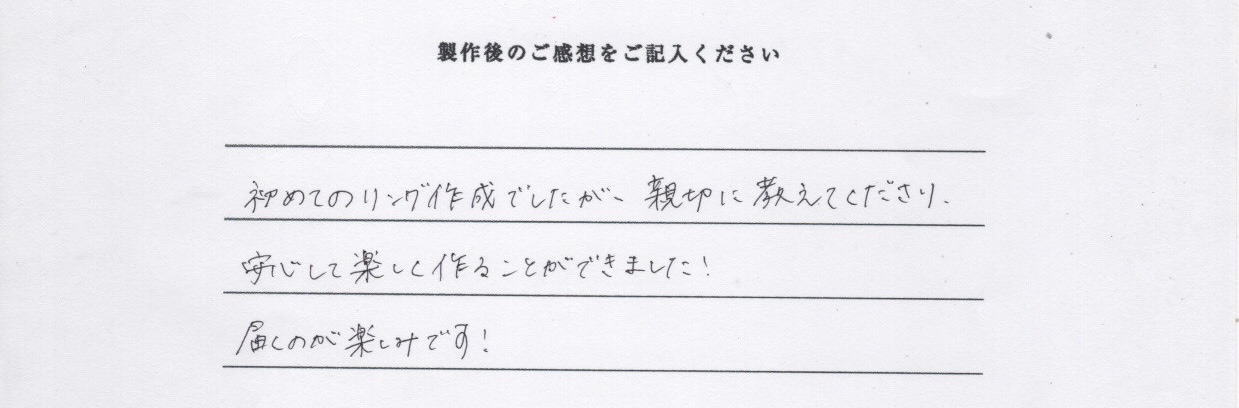 製作後のご感想をご記入ください
初めてのリング作成でしたが、親切に教えてくださり、
安心して楽しく作ることができました!
届くのが楽しみです!